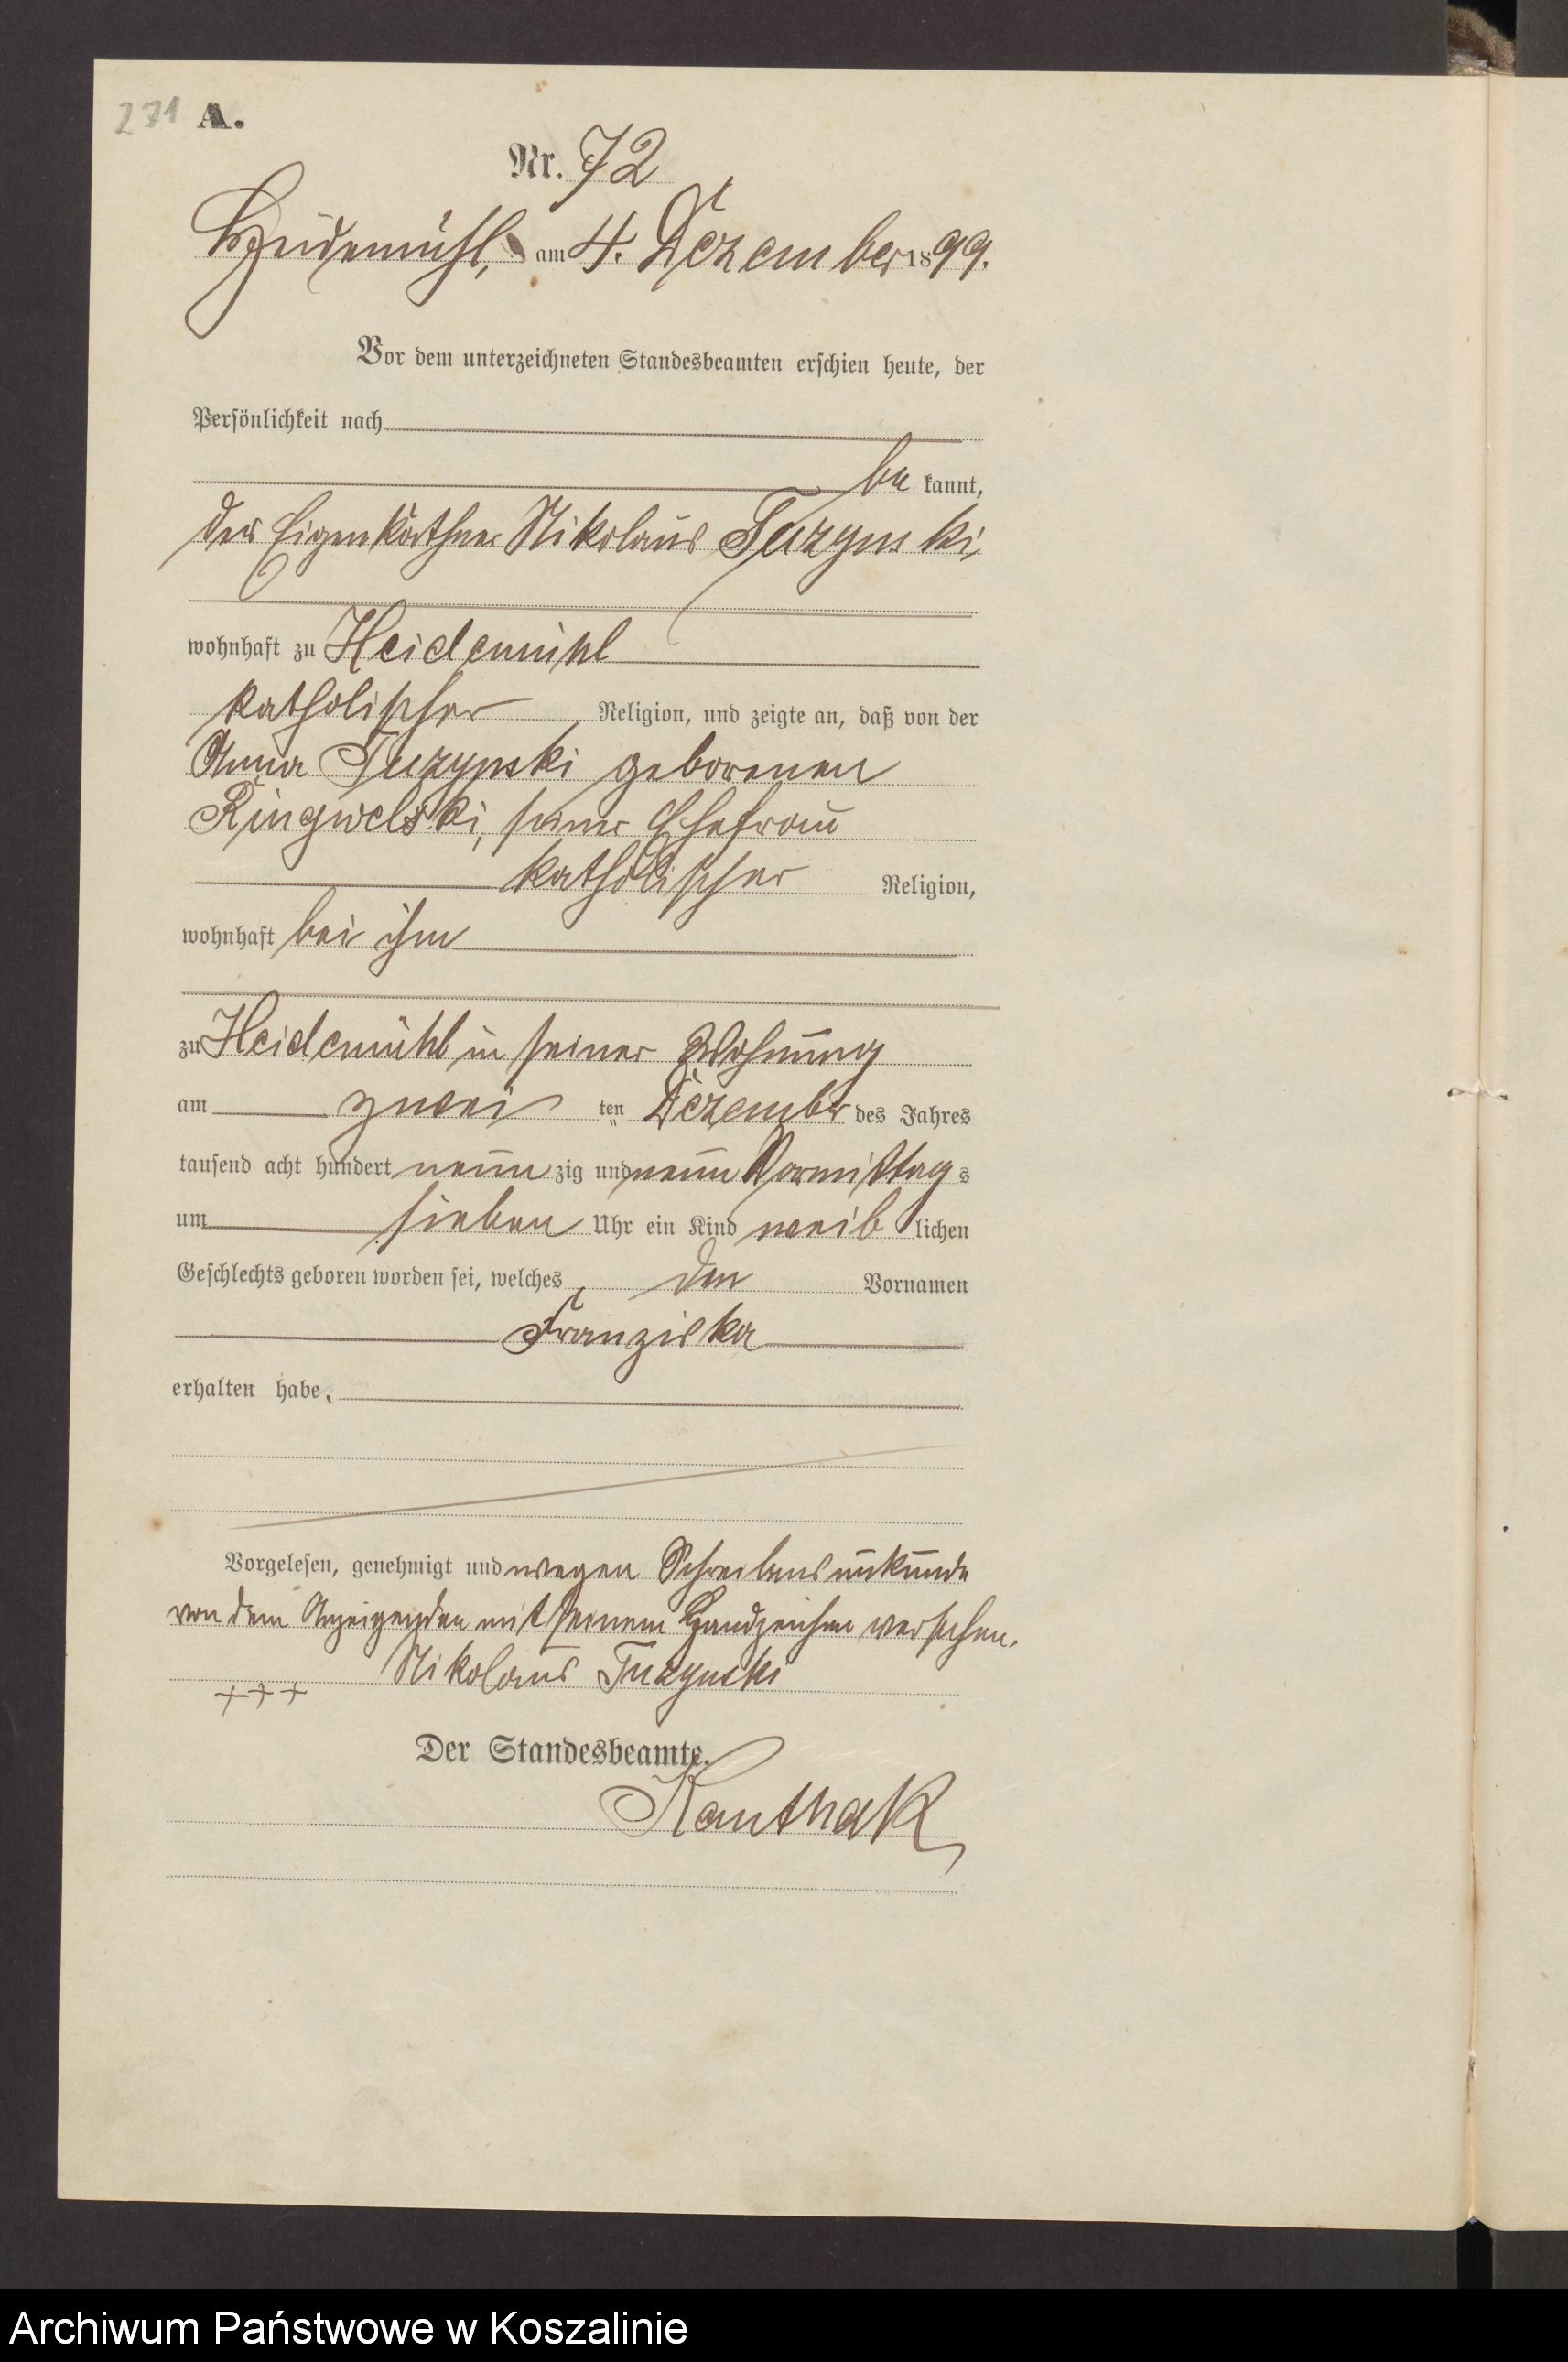 271 A.
Nr. 72
Heidemühl, am 4. Dezember 1899.
Vor dem unterzeichneten Standesbeamten erschien heute, der
Persönlichkeit nach
be kannt,
der Eigenkäthner Nikolaus Tuzynski,
wohnhaft zu Heidemühl
katholischer Religion, und zeigte an, daß von der
Anna Tuzynski geborenen
Ringwelski, seiner Ehefrau
katholischer Religion,
wohnhaft bei ihm
zu Heidemühl in seiner Wohnung
am zwei ten Dezember des Jahres
tausend acht hundert neun zig und neun Vormittag s
um sieben Uhr ein Kind weib lichen
Geschlechts geboren worden sei, welches den Vornamen
Franziska
erhalten habe.
Vorgelesen, genehmigt und wegen Schreibensunkunde
von dem Anzeigenden mit seinem Handzeichen versehen.
+++ Nikolaus Tuzynski
Der Standesbeamte.
Kanthak
Archiwum Państwowe w Koszalinie